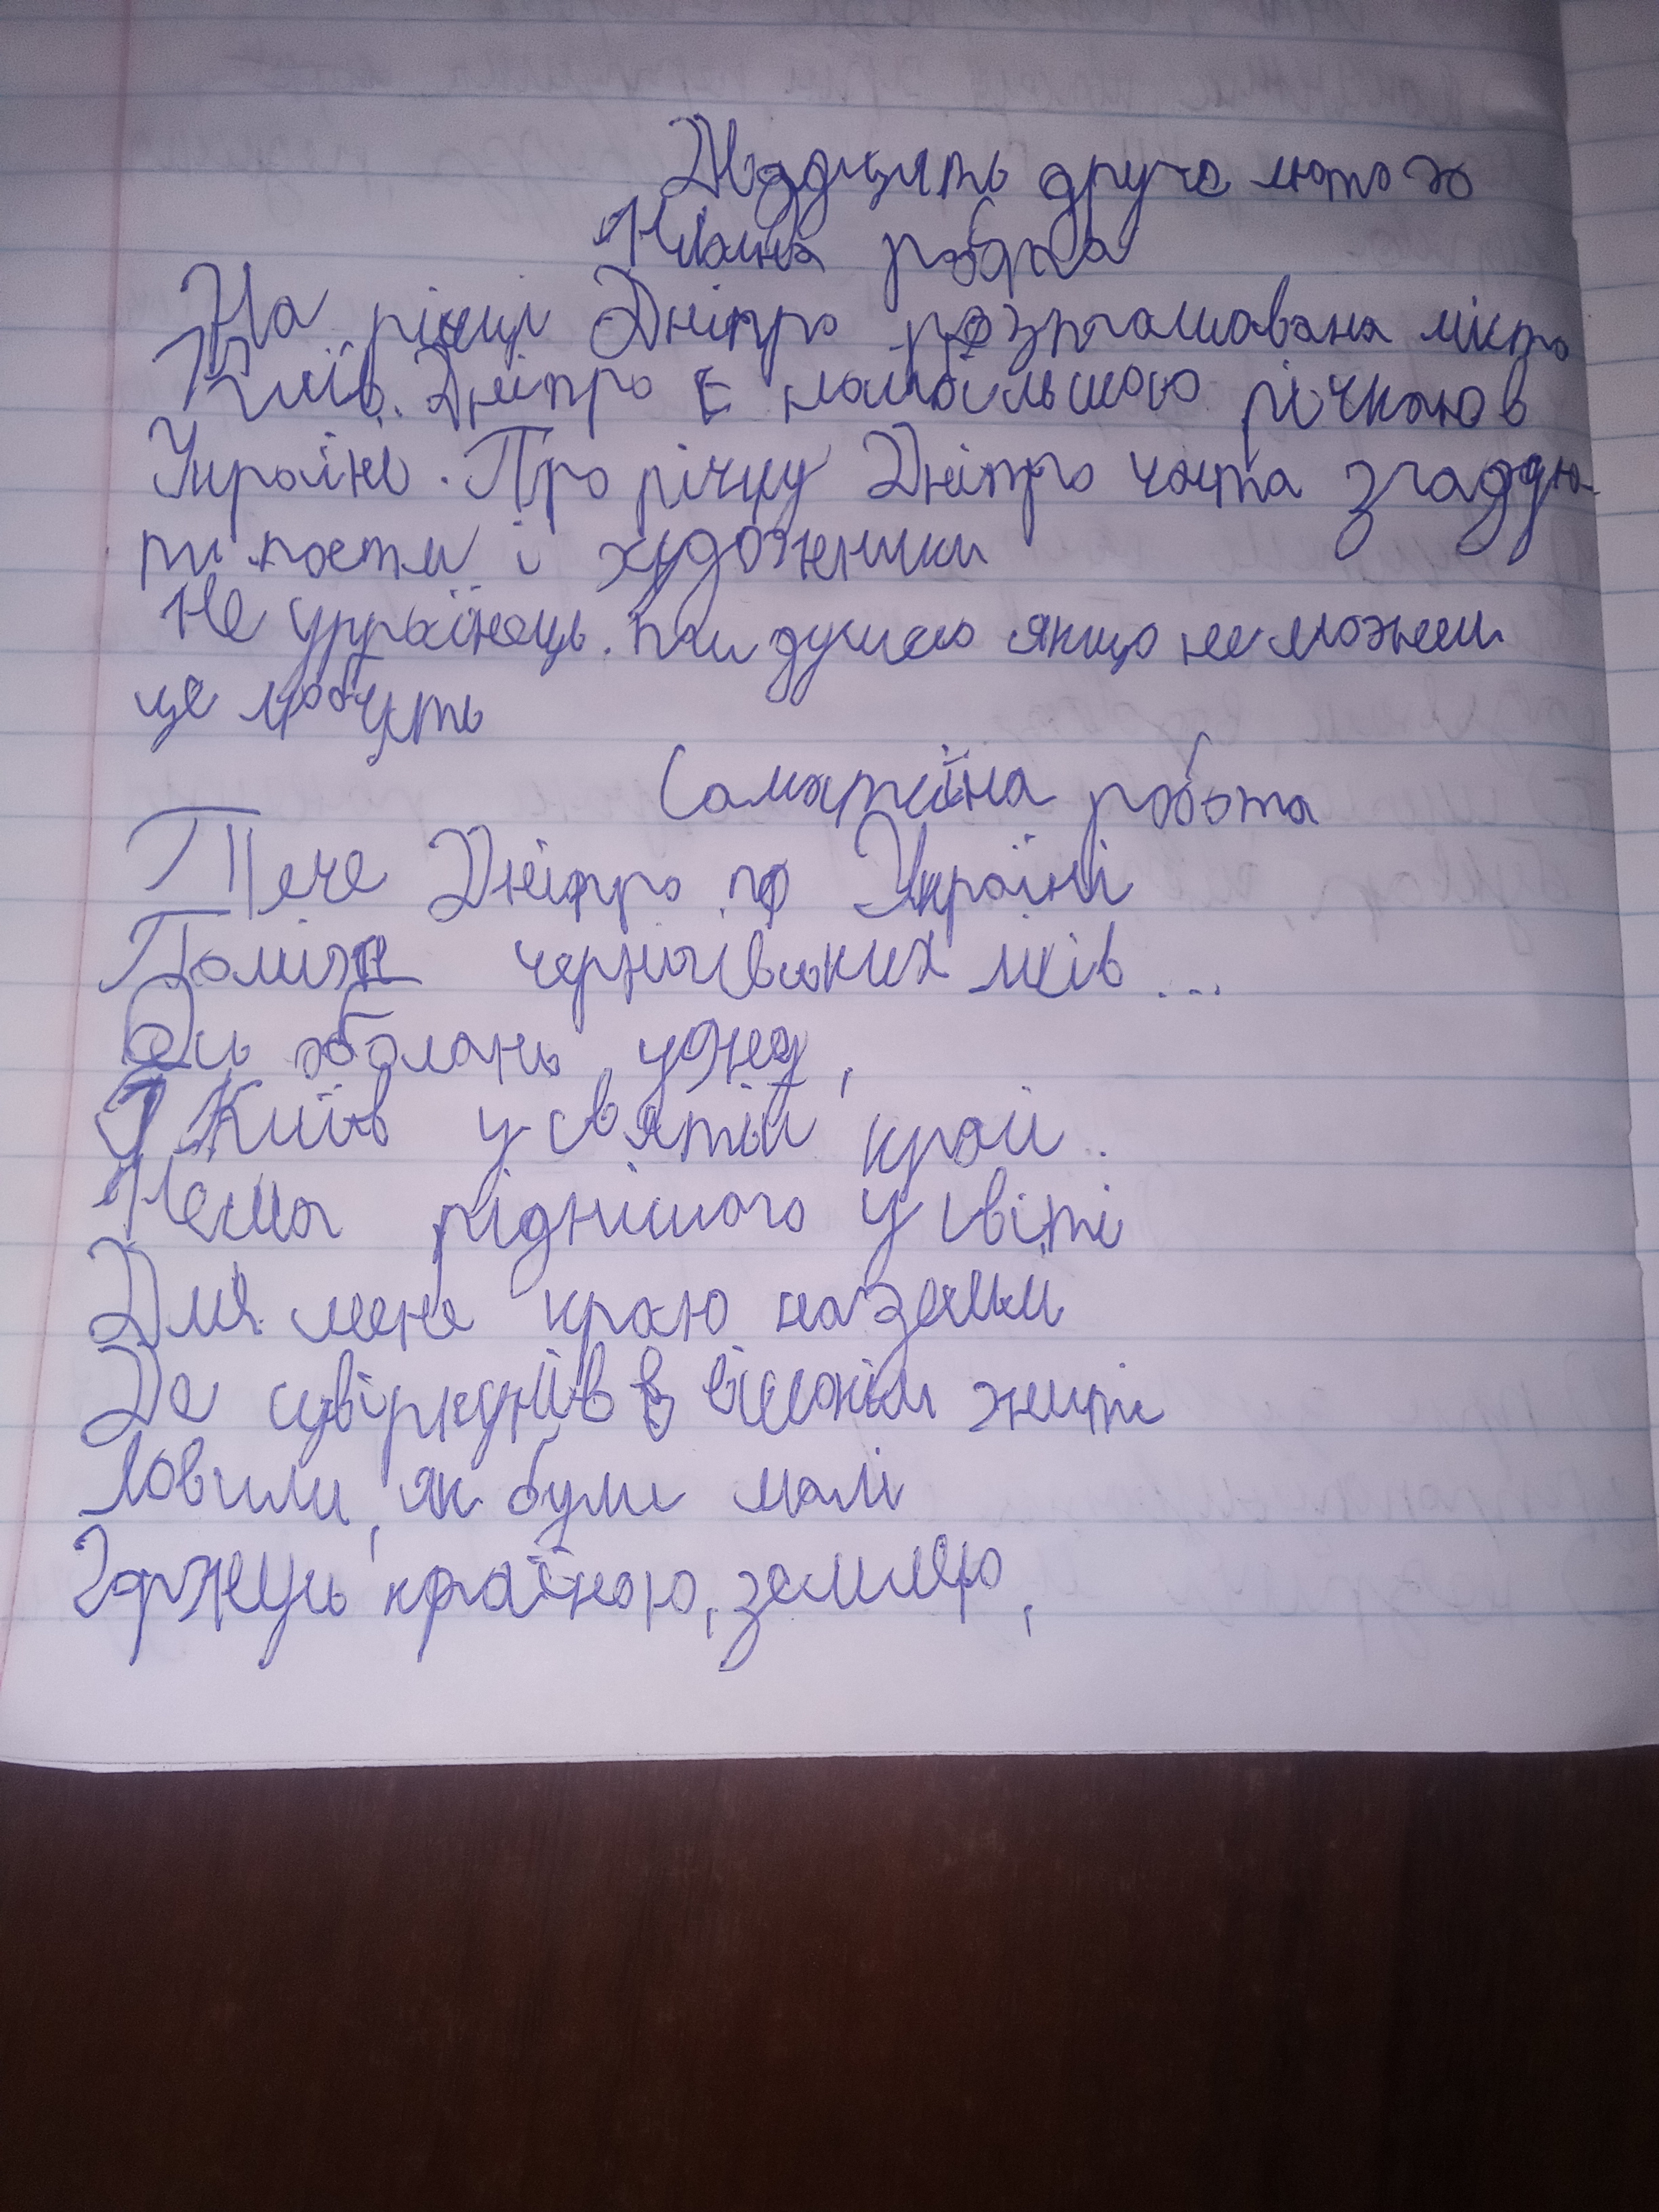 Двадцять друге лютого
Класна робота
На річці Дніпро розташована місто
Київ. Дніпро є найбільшою річкою в
Україні. Про річку Дніпро часто згадую-
ти поети і художники
Не українець. ти душею якщо не можеш
це любить
Самостійна робота
Тече Дніпро по Україні
Поміж чернігівських лісів...
Ось оболань,
І Київ у святій краї.
Нема ріднішого у світі
Для мене краю на землі
Де цвіркунів в житі
Ловили, як були малі
країною, землею,